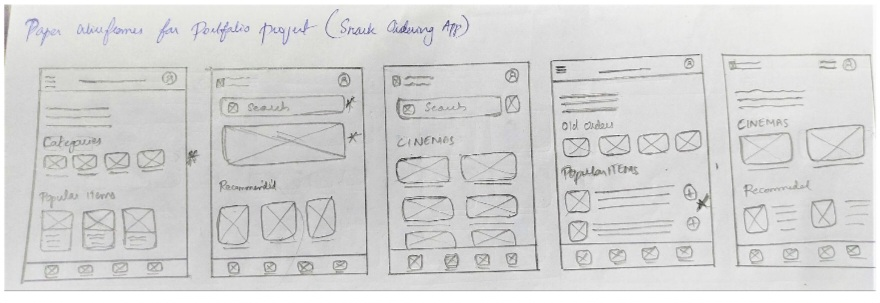 Paper wireframes for Portfolio project (Snack Ordering App)
Categories
Popular Items
Search
Recommended
Search
CINEMAS
Old orders
Popular ITEMS
CINEMAS
Recommended